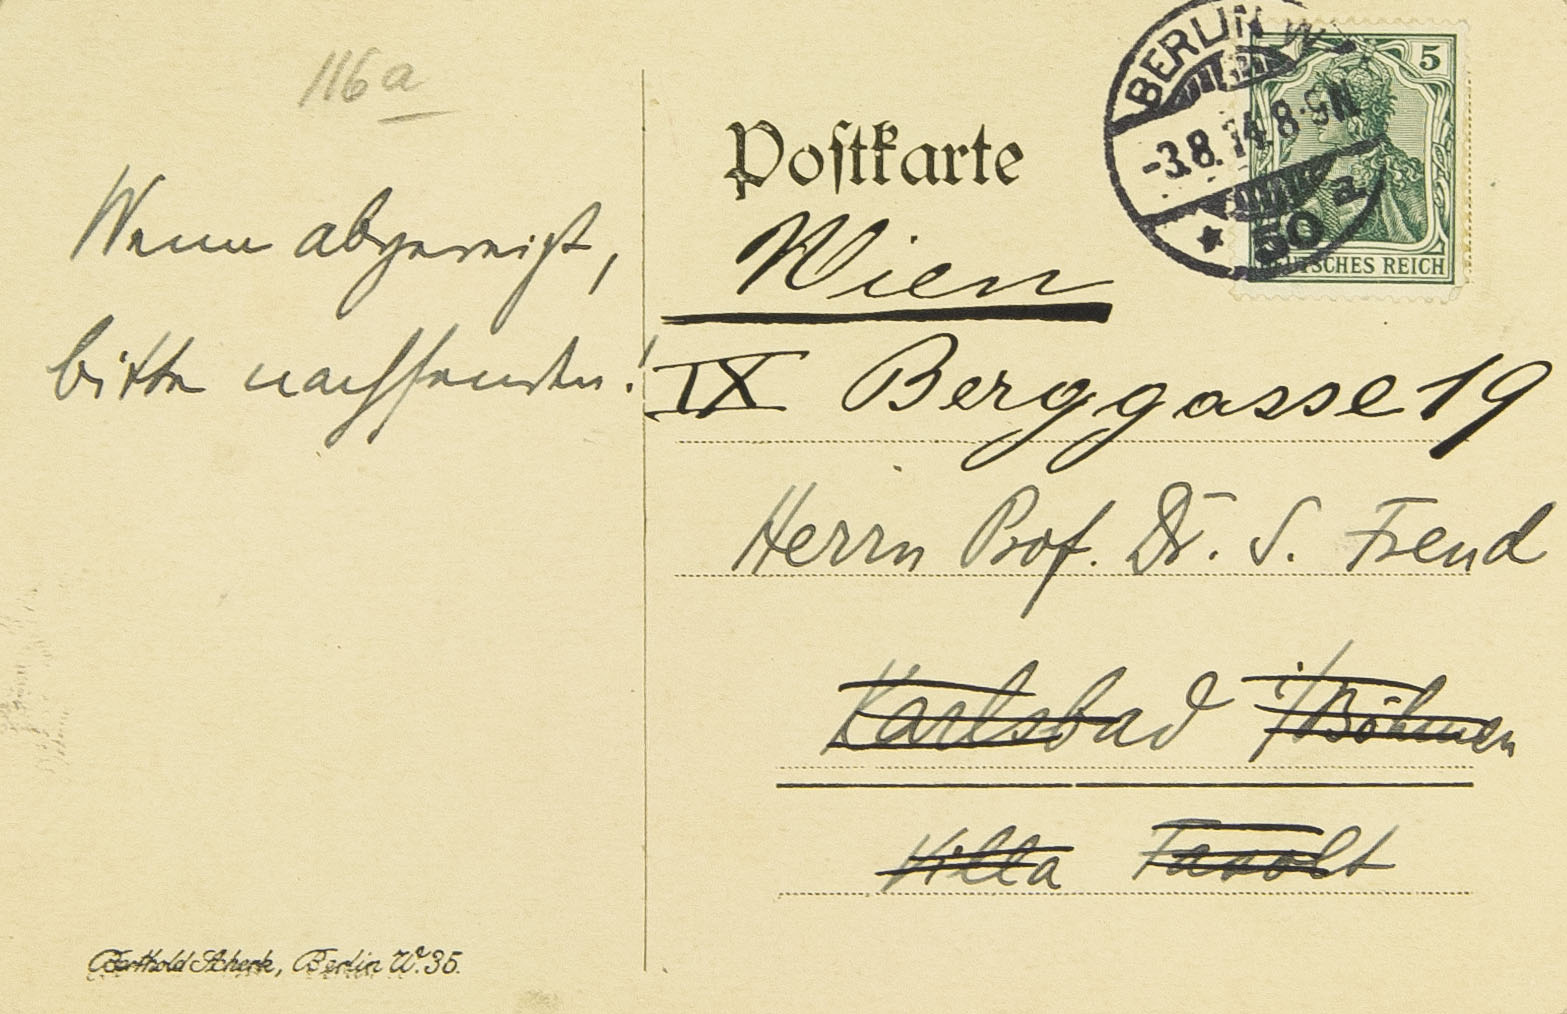 116a
Wenn abgereist,
bitte nachsenden!
Postkarte
BERLIN W
-3.8.14.8-9N
* 50 a
5
DEUTSCHES REICH
Wien
IX Berggasse 19
Herrn Prof. Dr. S. Freud
Karlsbad i/Böhmen
Villa Fasolt
Berthold Scherk, Berlin W. 35.